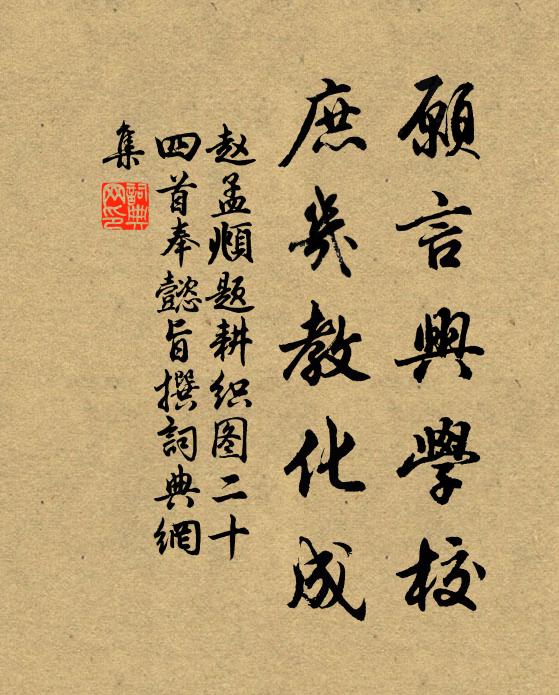 願言興學校
庶幾教化成
赵孟頫题耕织图二十
四首奉懿旨撰詞典網
集
詞典网印